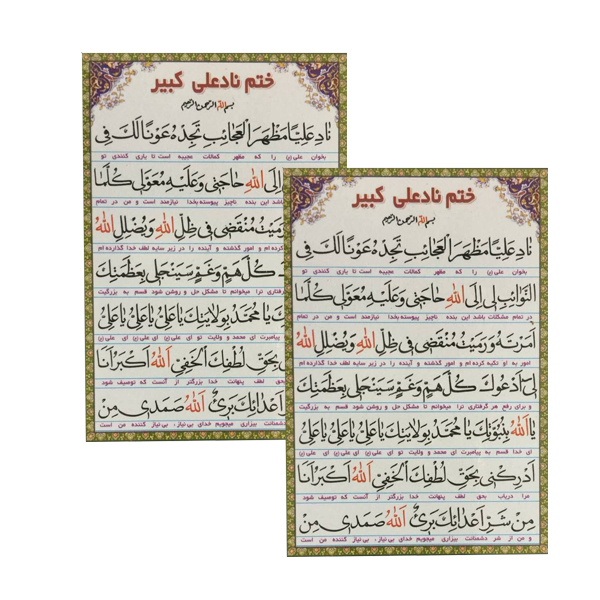 ختم نادعلی کبیر
بسم الله الرحمن الرحیم
نادِ عَلِیًّا مَظْهَرَ الْعَجَائِبِ تَجِدْهُ عَوْنًا لَكَ فِی
بخوان علی (ع) را که مظهر کمالات عجیبه است تا یاری کنندی تو
إِلَی اللهِ حَاجَتِی وَعَلَیْهِ مُعَوَّلِی كُلَّمَا
باشد این بنده ناچیز پیوسته بخدا نیازمند است و من در تمام
رَمَیْتَ مُنْقَضِی فِی ظِلِّ اللهِ وَیُضْلِلِ اللهُ
كُلُّ هَمٍّ وَغَمٍّ سَیَنْجَلِی بِعَظَمَتِكَ
گرفتاری ترا میخوانم تا مشکل حل و روشن شود قسم به بزرگیت
یَا مُحَمَّدُ بِوِلَایَتِكَ یَا عَلِیُّ یَا عَلِیُّ یَا عَلِیُّ
پیامبرت ای محمد و ولایت تو ای علی (ع) ای علی (ع)
بِحَقِّ لُطْفِكَ الْخَفِیِّ اللهُ أَكْبَرُ أَنَا
بحق لطف پنهانت خدا بزرگتر از آنست که توصیف شود
أَعْدَائِكَ بَرِیءٌ اللهُ صَمَدِی مِنْ
دشمنانت بیزاری میجویم خدای بی نیاز، بی نیاز کننده من است
ختم نادعلی کبیر
بسم الله الرحمن الرحیم
نادِ عَلِیًّا مَظْهَرَ الْعَجَائِبِ تَجِدْهُ عَوْنًا لَكَ فِی
بخوان علی (ع) را که مظهر کمالات عجیبه است تا یاری کنندی تو
النَّوَائِبِ لِی إِلَی اللهِ حَاجَتِی وَعَلَیْهِ مُعَوَّلِی كُلَّمَا
در تمام مشکلات باشد این بنده ناچیز پیوسته بخدا نیازمند است و من در تمام
أَمَرْتَهُ وَرَمَیْتَ مُنْقَضِی فِی ظِلِّ اللهِ وَیُضْلِلِ اللهُ
امور به او تکیه کرده ام و امور گذشته و آینده را در زیر سایه لطف خدا گذارده ام
لِی أَدْعُوكَ كُلُّ هَمٍّ وَغَمٍّ سَیَنْجَلِی بِعَظَمَتِكَ
و برای رفع هر گرفتاری ترا میخوانم تا مشکل حل و روشن شود قسم به بزرگیت
یَا اَللهُ بِنُبُوَّتِكَ یَا مُحَمَّدُ بِوِلَایَتِكَ یَا عَلِیُّ یَا عَلِیُّ یَا عَلِیُّ
ای خدا قسم به پیامبرت ای محمد و ولایت تو ای علی (ع) ای علی (ع) ای علی (ع)
أَدْرِكْنِی بِحَقِّ لُطْفِكَ الْخَفِیِّ اللهُ أَكْبَرُ أَنَا
مرا دریاب بحق لطف پنهانت خدا بزرگتر از آنست که توصیف شود
مِنْ شَرِّ أَعْدَائِكَ بَرِیءٌ اللهُ صَمَدِی مِنْ
و من از شر دشمنانت بیزاری میجویم خدای بی نیاز، بی نیاز کننده من است